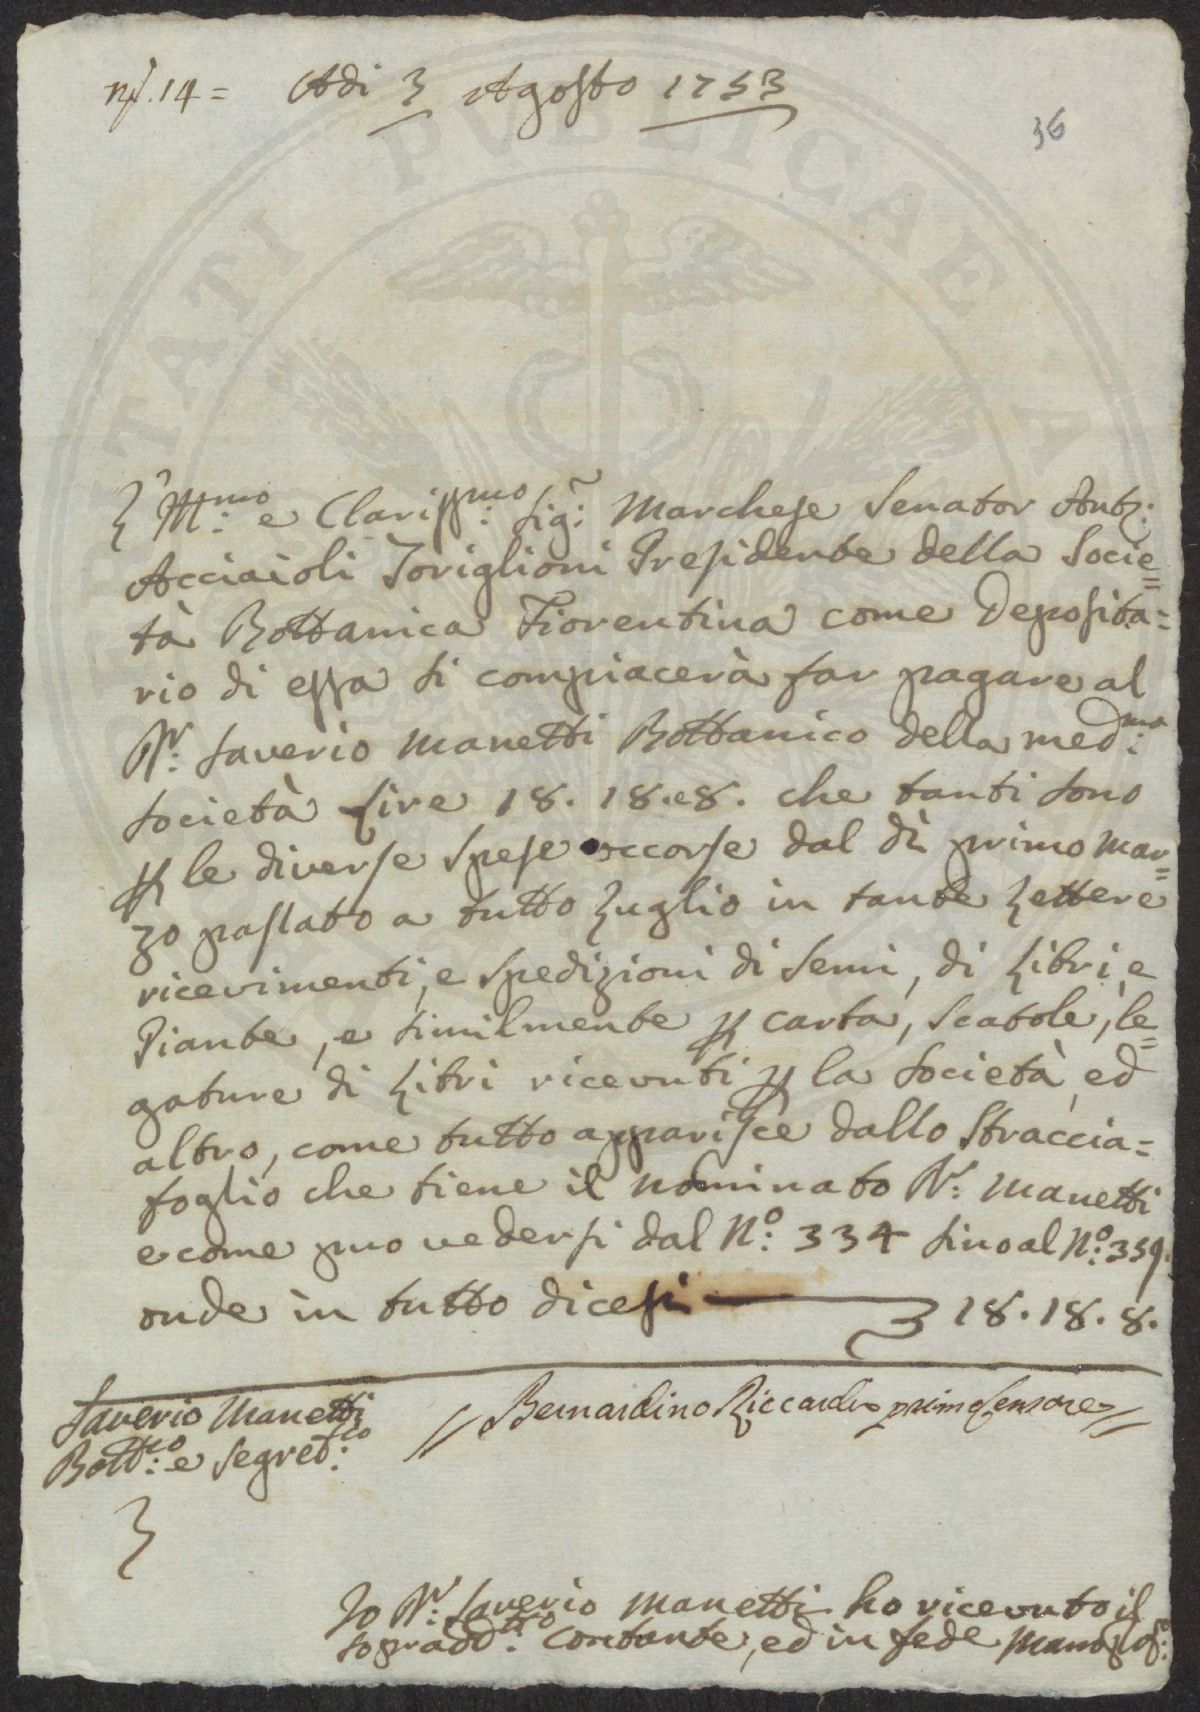 nº. 14 = Adi 3 Agosto 1753
36
Ill:mo e Clariss:mo Sig:r Marchese Senator Ant:
Acciaioli Toriglioni Presidente della Socie=
tà Bottanica Fiorentina come Deposita=
rio di essa si compiacerà far pagare al
Dr: Saverio Manetti Bottanico della med:ma
Società Lire 18. 18. e 8. che tanti sono
p le diverse spese occorse dal dì primo Mar=
zo passato a tutto Luglio in tante Lettere
ricevimenti, e spedizioni di Semi, di Libri, e
Piante, e similmente p carta, Scatole, le=
gature di Libri ricevuti p la Società, ed
altro, come tutto apparisce dallo Straccia=
foglio che tiene il nominato Dr: Manetti
e come può vedersi dal Nº: 334 sino al Nº: 359.
onde in tutto dicesi 18. 18. 8.
Saverio Manetti
Bott:co e Segret:rio
// Bernardino Riccardi primo Censore //
Io Dr: Saverio Manetti ho ricevuto il
sopradd:tto contante, ed in fede mano pp: